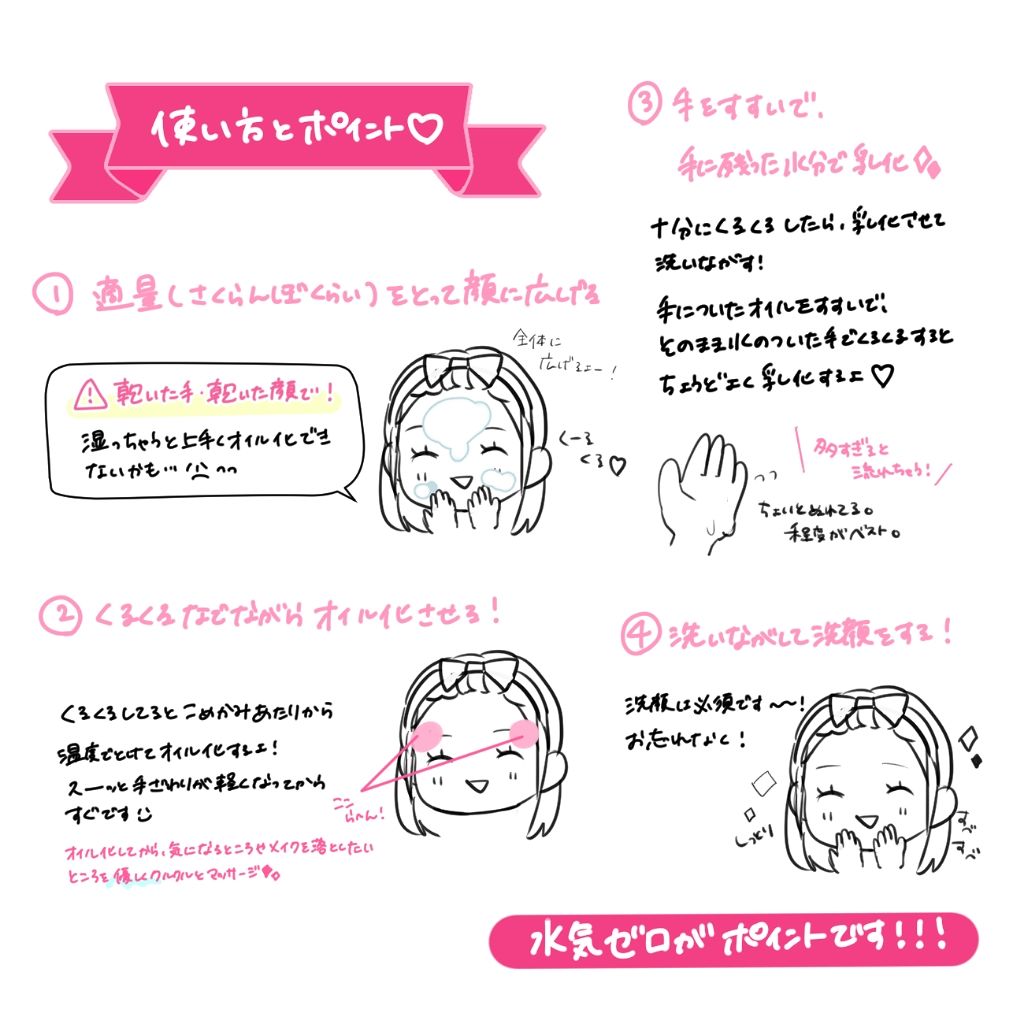 使い方とポイント♡
① 適量(さくらんぼくらい)をとって顔に広げる
⚠ 乾いた手・乾いた顔で!
湿っちゃうと上手くオイル化でき
ないかも…
全体に
広げるよー!
くーる
くる♡
② くるくるなでながらオイル化させる!
くるくるしてるとこめかみあたりから
温度でとけてオイル化するよ!
スーッと手ざわりが軽くなってから
すぐです
ここ
ら〜ん!
オイル化してから、気になるところやメイクを落としたい
ところを優しくクルクルとマッサージ
③ 手をすすいで、
手に残った水分で乳化
十分にくるくるしたら、乳化させて
洗いながす!
手についたオイルをすすいで、
そのまま水のついた手でくるくるすると
ちょうどよく乳化するよ♡
多すぎると
流れちゃう!
ちょいとぬれてる。
程度がベスト。
④ 洗いながして洗顔をする!
洗顔は必須です〜〜!
お忘れなく!
しっとり
すべ
すべ
水気ゼロがポイントです!!!